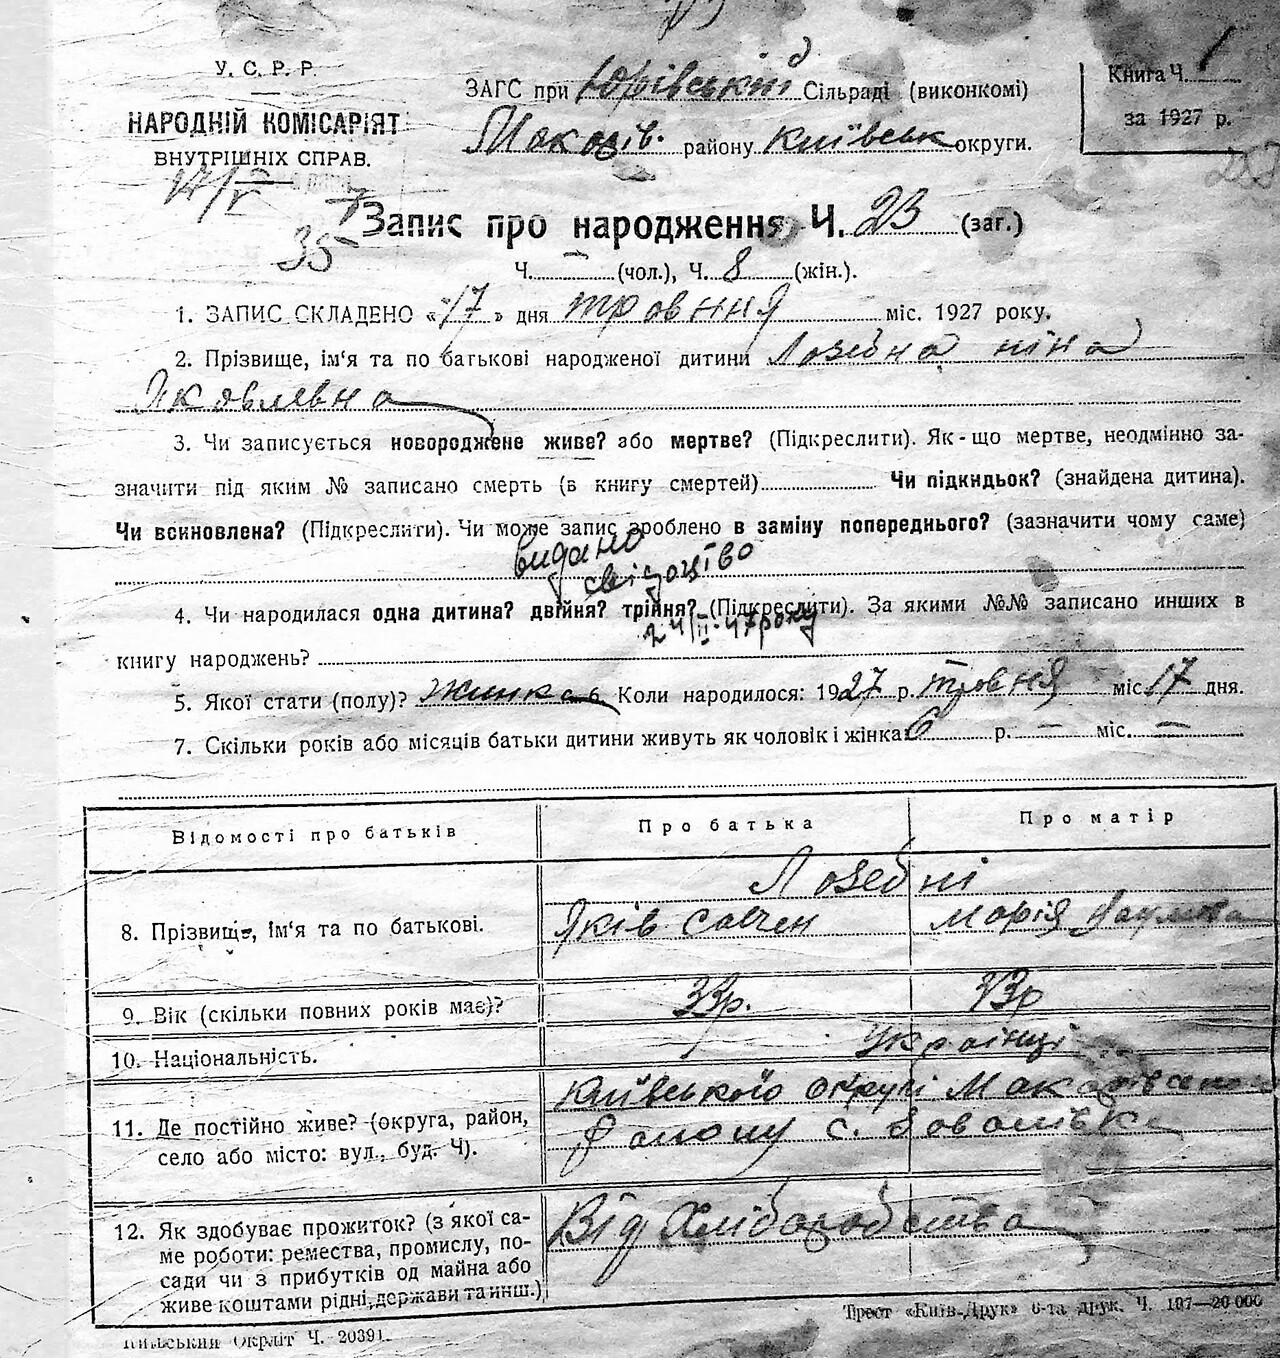 У. С. Р. Р.
НАРОДНІЙ КОМІСАРІЯТ
ВНУТРІШНІХ СПРАВ.
ЗАГС при Юрівській Сільраді (виконкомі)
Макарів. району Київськ округи.
Книга Ч. 1
за 1927 р.
17/V
35
Запис про народження Ч. 23 (заг.)
Ч. — (чол.), Ч. 8 (жін.).
1. ЗАПИС СКЛАДЕНО «17» дня травння міс. 1927 року.
2. Прізвище, ім'я та по батькові народженої дитини Лозебна ніна
Яковлевна
3. Чи записується новороджене живе? або мертве? (Підкреслити). Як-що мертве, неодмінно за-
значити під яким № записано смерть (в книгу смертей) Чи підкидьок? (знайдена дитина).
Чи всиновлена? (Підкреслити). Чи може запис зроблено в заміну попереднього? (зазначити чому саме)
видано
свідоцтво
4. Чи народилася одна дитина? двійня? трійня? (Підкреслити). За якими №№ записано инших в
24/II-47 року
книгу народжень?
5. Якої стати (полу)? жинка 6. Коли народилося: 1927 р. травня міс. 17 дня.
7. Скільки років або місяців батьки дитини живуть як чоловік і жінка 6 р. — міс. —
Відомості про батьків Про батька Про матір
Лозебні
8. Прізвище, ім'я та по батькові. Яків Савчен Марія Наумова
9. Вік (скільки повних років має)? 33р. 33р
10. Національність. Українці
11. Де постійно живе? (округа, район,
село або місто: вул., буд. Ч).
Київського округи Макарівського
району с.
12. Як здобуває прожиток? (з якої са-
ме роботи: ремества, промислу, по-
сади чи з прибутків од майна або
живе коштами рідні, держави та инш.)
Від Хліборобства
Київський Окрліт Ч. 20391.
Трест «Київ-Друк» 6-та друк. Ч. 197—20 000